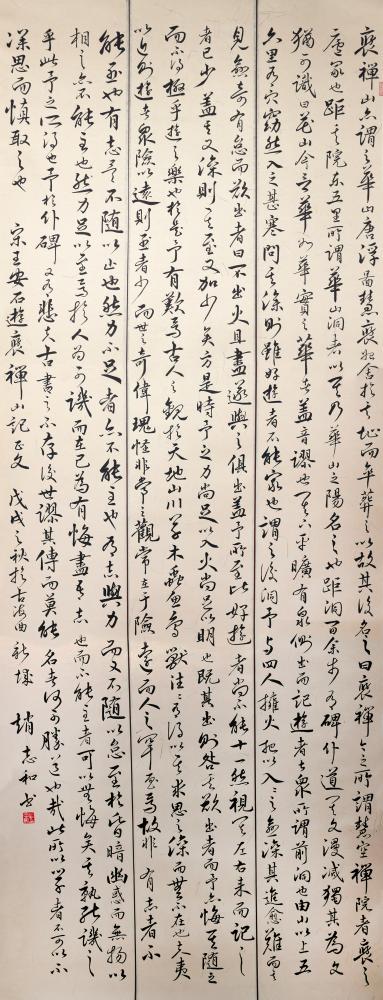 褒禪山亦謂之華山唐浮圖慧褒始舍於其址而卒葬之以故其後名之曰褒禪今之所謂慧空禪院者褒之
廬冢也距其院東五里所謂華山洞者以其乃華山之陽名之也距洞百余步有碑仆道其文漫滅獨其為文
猶可識曰花山今言華如華實之華者蓋音謬也其下平曠有泉側出而記遊者甚衆所謂前洞也由山以上五
六里有穴窈然入之甚寒問其深則雖好遊者不能窮也謂之後洞予與四人擁火把以入入之愈深其進愈難而其
見愈奇有怠而欲出者曰不出火且盡遂與之俱出蓋予所至比好遊者尚不能十一然視其左右來而記之
者已少蓋其又深則其至又加少矣方是時予之力尚足以入火尚足以明也既其出則咎其欲出者而予亦悔其隨之
而不得極乎遊之樂也於是予有歎焉古人之觀於天地山川草木蟲魚鳥獸往往有得以其求思之深而無不在也夫夷
以近則遊者衆險以遠則至者少而世之奇偉瑰怪非常之觀常在于險遠而人之罕至焉故非有志者不
能至也有志矣不隨以止也然力不足者亦不能至也有志與力而又不隨以怠至於昏暗幽惑而無物以
相之亦不能至也然力足以至焉於人為可譏而在己為有悔盡吾志也而不能至者可以無悔矣其孰能譏之
乎此予之所得也予於仆碑又有悲夫古書之不存後世謬其傳而莫能名者何可勝道也哉此所以學者不可以不
深思而慎取之也 宋王安石遊褒禪山記正文 戊戌之秋於古海曲新 趙志和書